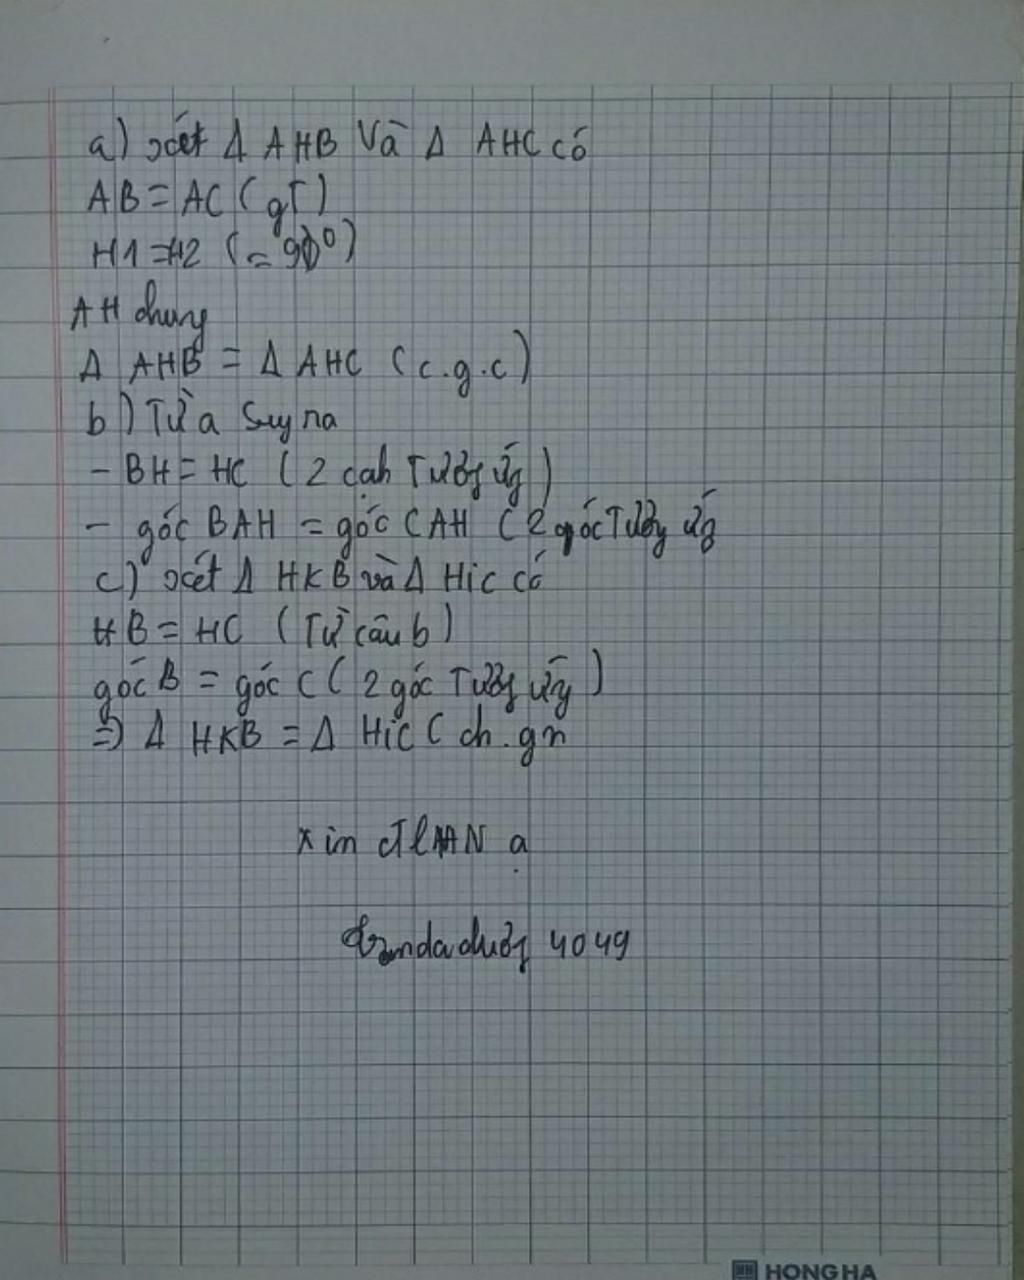 a) xét Δ AHB Và Δ AHC có
AB = AC (gT)
H1 = H2 (= 90°)
AH chung
Δ AHB = Δ AHC (c.g.c)
b) Từ a Suy ra
- BH = HC (2 cạh Tương ứg)
- góc BAH = góc CAH (2 góc Tương ứg
c) xét Δ HKB và Δ HiC có
HB = HC (Từ câu b)
góc B = góc C (2 góc Tương ứg)
=) Δ HKB = Δ HiC (ch.gn
xin cTlHN ạ
4049
HONG HA